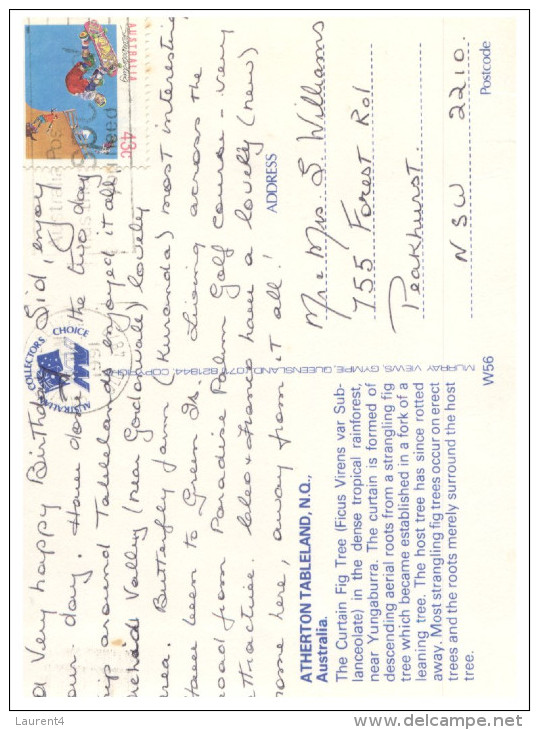 A Very happy Birthday Sid, enjoy
our day. Have done the two day
ip around Tablelands enjoyed it all.
Valley (near Gordonvale) lovely
area. Butterfly farm (Kuranda) most interestin
Have been to Green Is. Living across the
road from Paradise Palm Golf Course - very
attractive. have a lovely (new)
home here, away from it all!
AUSTRALIA
43c
COLLECTORS CHOICE
ADDRESS
Mr & Mrs. S Williams
755 Forest Rd
Peakhurst.
NSW 2210.
Postcode
MURRAY VIEWS, GYMPIE, QUEENSLAND. (071) 821844. COPYRIGHT
W56
ATHERTON TABLELAND, N.Q.,
Australia.
The Curtain Fig Tree (Ficus Virens var Sub-
lanceolate) in the dense tropical rainforest,
near Yungaburra. The curtain is formed of
descending aerial roots from a strangling fig
tree which became established in a fork of a
leaning tree. The host tree has since rotted
away. Most strangling fig trees occur on erect
trees and the roots merely surround the host
tree.
Laurent4
www.delcampe.net